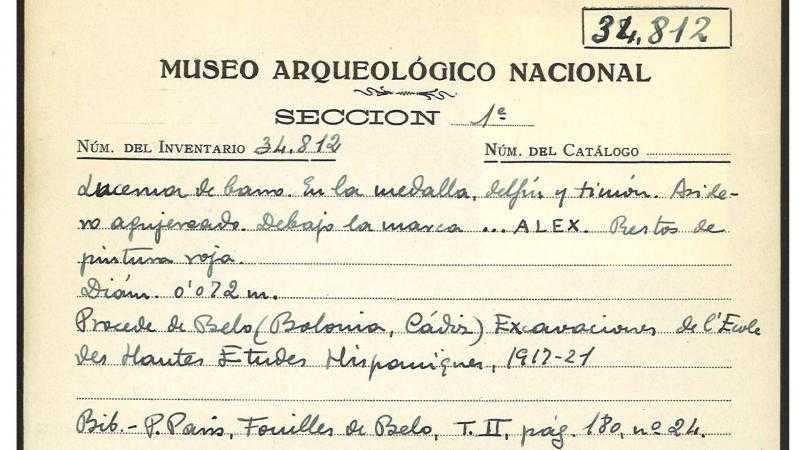 34.812
MUSEO ARQUEOLÓGICO NACIONAL
SECCION 1ª
NÚM. DEL INVENTARIO 34.812 NÚM. DEL CATÁLOGO
Lucerna de barro. En la medalla, delfín y timón. Aside-
ro agujereado. Debajo la marca ... ALEX. Restos de
pintura roja.
Diám. 0'072 m.
Procede de Belo (Bolonia, Cádiz) Excavaciones de l'Ecole
des Hautes Etudes Hispaniques, 1917-21
Bib.- P. Paris, Fouilles de Belo, T. II, pág. 180, nº 24.